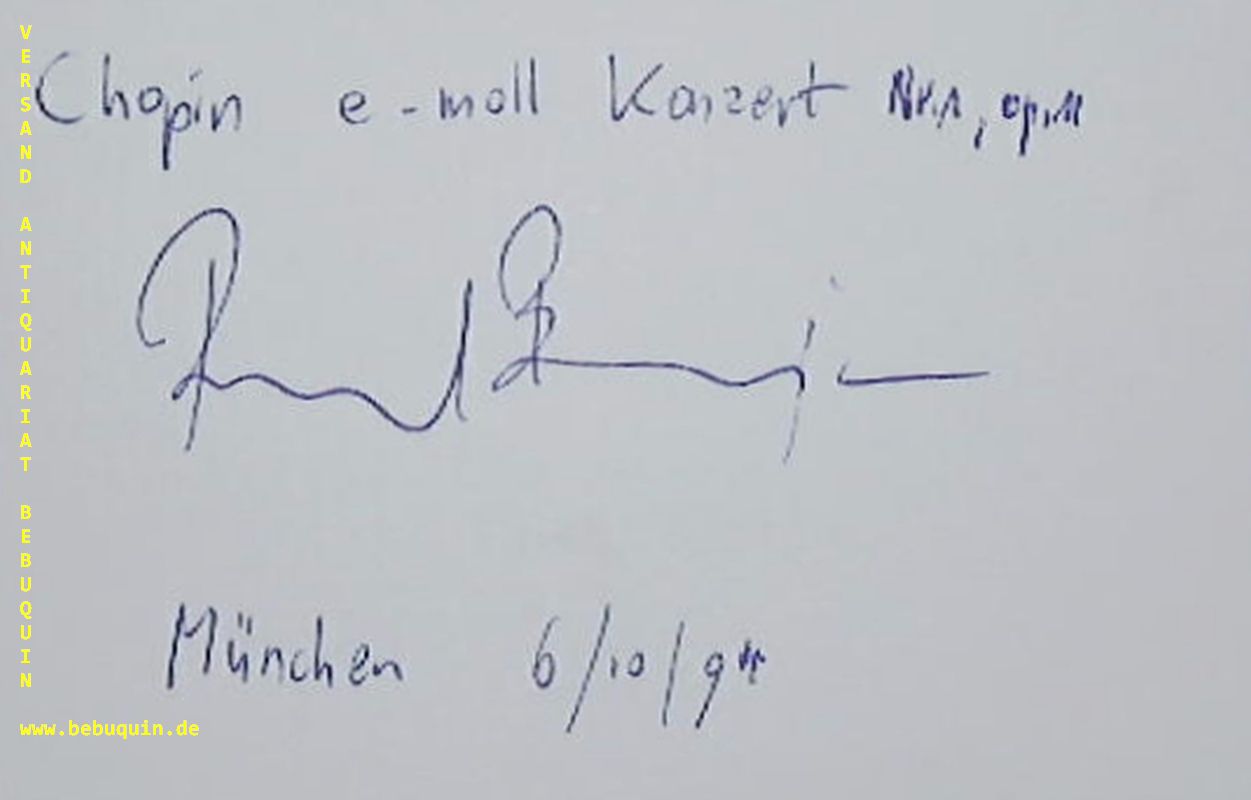 Chopin e-moll Konzert Nr.1, op.11
München 6/10/94
VERSAND ANTIQUARIAT BEBUQUIN
www.bebuquin.de